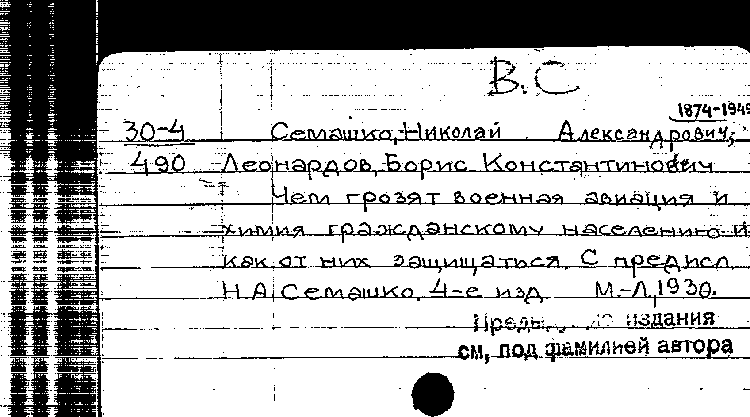 В.С
1874-1949
30-4 Семашко, Николай Александрович,
490 Леонардов, Борис Константинович
Чем грозят военная авиация и
химия гражданскому населению и
как от них защищаться. С предисл
Н.А. Семашко. 4-е изд М.-Л, 1930.
издания
см, под фамилией автора